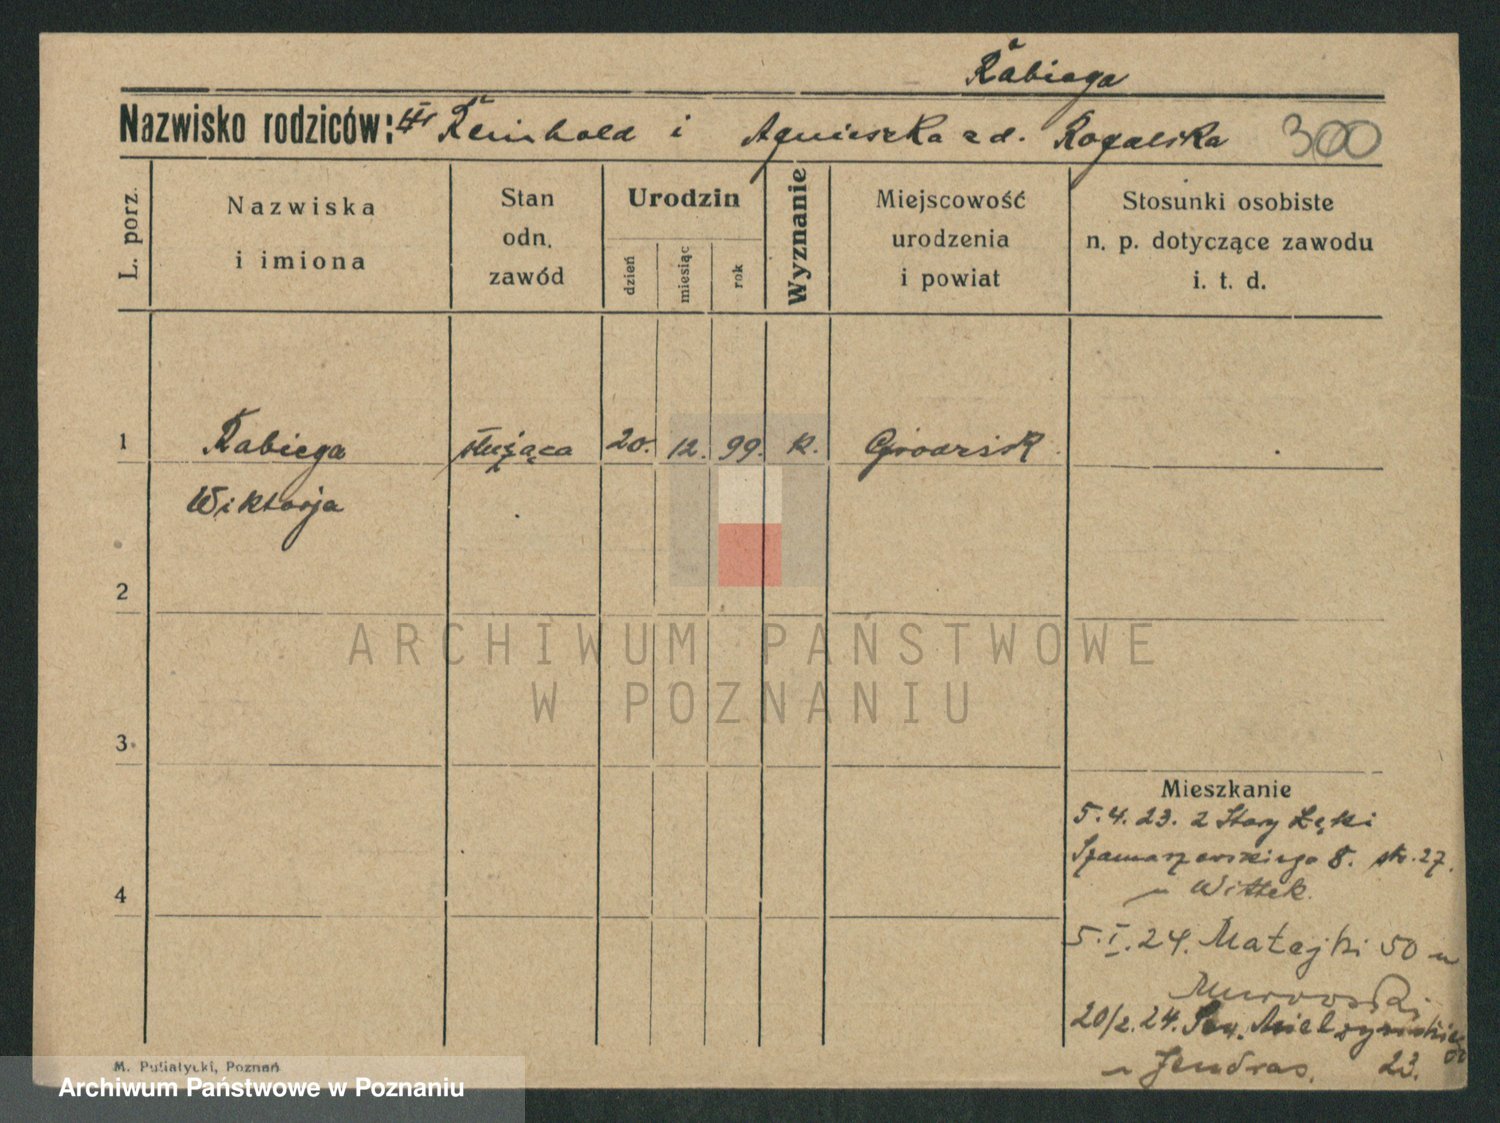 Rabiega
Nazwisko rodziców: Reinhold i Agnieszka zd. Rogalska 300
L. porz.
Nazwiska
i imiona
Stan
odn.
zawód
Urodzin
dzień
miesiąc
rok
Wyznanie
Miejscowość
urodzenia
i powiat
Stosunki osobiste
n. p. dotyczące zawodu
i. t. d.
1 Rabiega służąca 20. 12. 99. k. Grodzisk
Wiktorja
2
ARCHIWUM PAŃSTWOWE
W POZNANIU
3
Mieszkanie
5.4.23. z Stary Łęki
Szamarzewskiego 8. str. 27.
4
u Wittek.
5.I.24. Matejki 50 u
Murowski
20/2.24. Sew. Mielżyńskiego
u Jendras. 23.
M. Putiatycki, Poznań
Archiwum Państwowe w Poznaniu